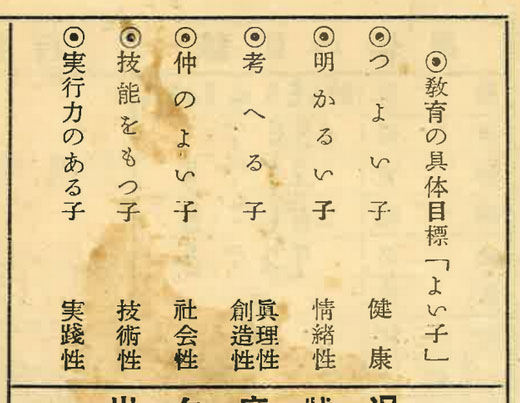 ◉教育の具体目標「よい子」
◉つよい子 健康
◉明かるい子 情緒性
◉考へる子 眞理性 創造性
◉仲のよい子 社会性
◉技能をもつ子 技術性
◉実行力のある子 実踐性